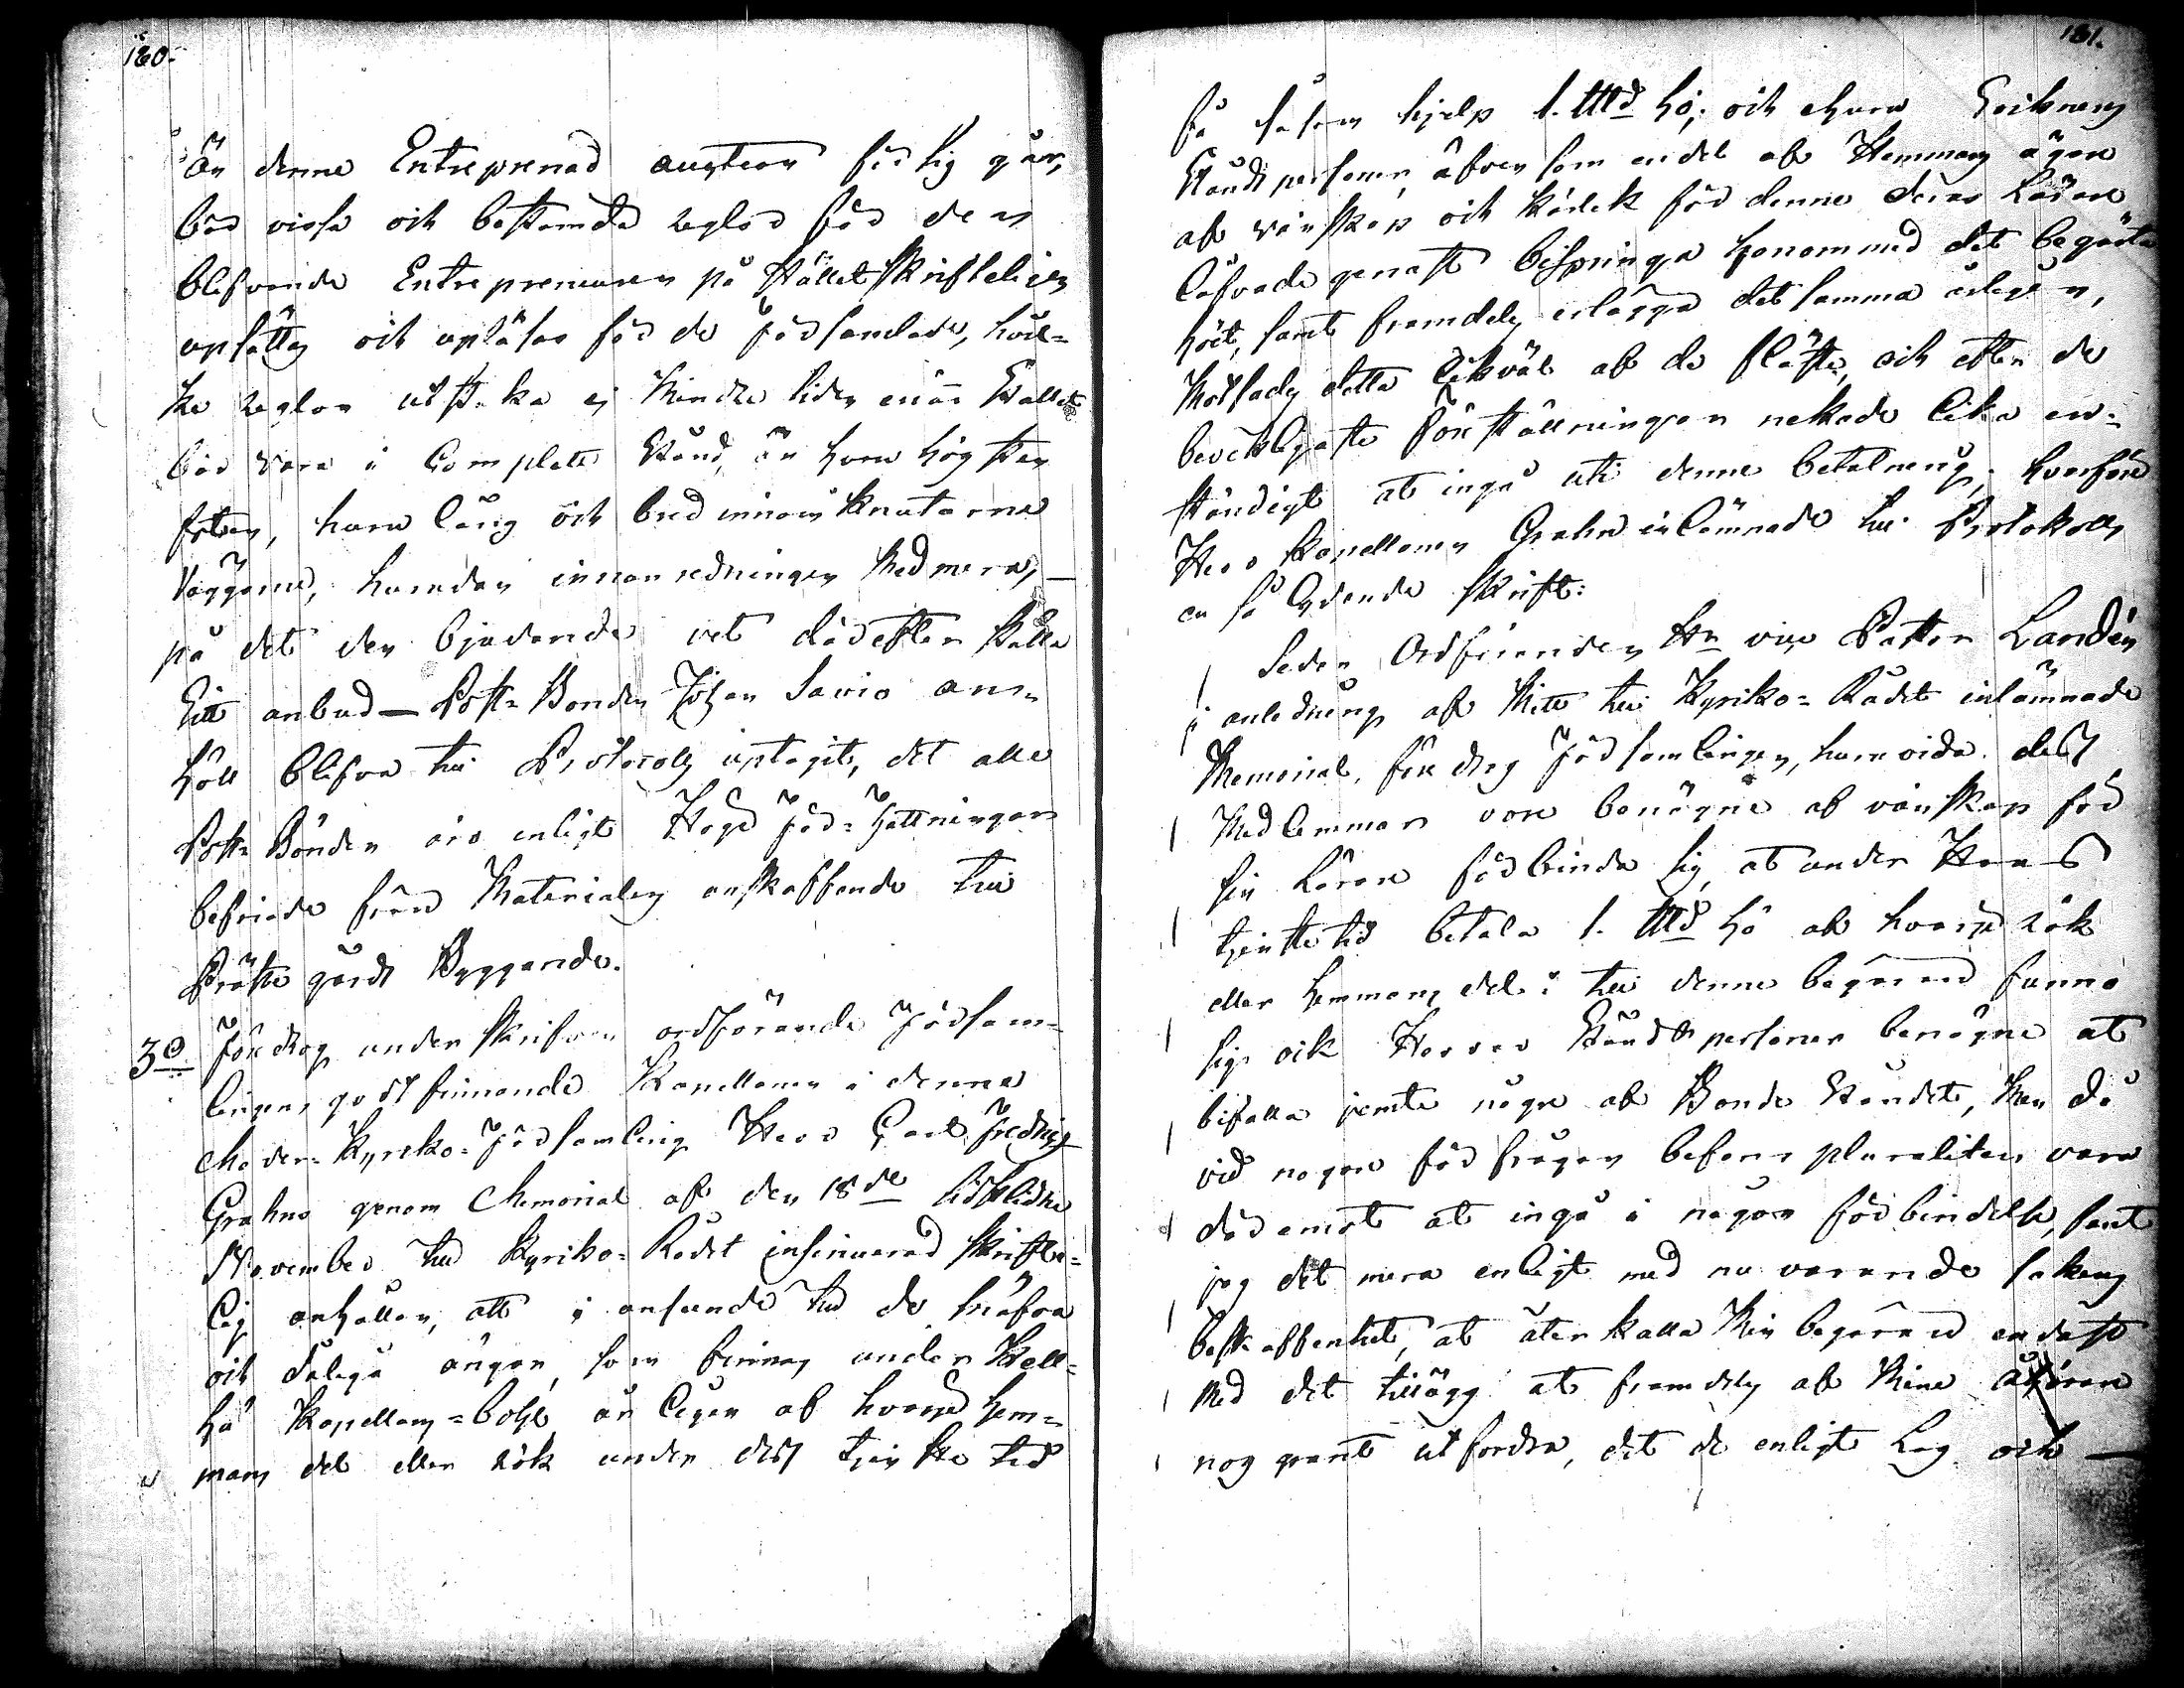 180.
än denne Entreprenad auction för sig går,
bör vissa och bestämda reglor för den
blifvande Entrepreneuren på Stället Skrifteligen
upsättas och upläsas för de Församlade, hvil-
ke reglor utstaka ej mindre tiden enär Stallet
bör vara i Complett Stånd, än huru hög
foten, huru lång och bred innom Knutarne
Väggarne, hurudan innanredningen med mera,
på det den bjudande vet därefter Ställa
Sitt anbud — Post-Bonden Johan Savio an-
höll blifva till Protocolls uptagit, det alle
Post-Bönder äro enligt Höga Författningar
befriade från Materialers anskaffande till
Präste gårds Byggande.
3o Föredrog underskrifven ordförande Försam-
lingens godtfinnande Kapellanen i denna
Moder-Kyrko-Församling Herr Carl Fredric
Grahns genom Memorial af den 18de sistlidne
November till Kyrko-Rådet insinuerad Skrifte-
lig anhållan, att i anseende till de
och dåliga ängar, som finnas under
Kapellans-bohl, årligen af hvarje hem-
mans del eller rök under dess tjenste tid
181.
få såsom hjelp 1. Lttd hö; och ehuru
Ståndspersoner, äfven som en del af Hemmans ägare
af vänskap och kärlek för denne deras Lärare
låfvade genast bispringa honom med det begärta
höet, samt framdeles erlägga det samma årligen,
motsades detta likväl af de fläste, och efter de
bevekligaste föreställningar nekade lika en-
ständigt at ingå uti denne betalning, hvarföre
Herr Kapellanen Grahn inlämnade till Protokolls
en så lydande Skrift:
Sedan Ordföranden Hr vice Pastor Landén
i anledning af Mitt till Kyrko-Rådet inlämnade
Memorial, föredrog Församlingen, huruvida dess
Medlemmar vore benägne af vänskap för
sin Lärare förbinda sig, at under Hans
tjenstetid betala 1. Lttd hö af hvarje rök
eller hemmans del: till denne begäran funno
sig ock Herrar Ståndspersoner benägne at
bifalla jemte någre af Bonde Ståndet, Men då
vid nogare förfrågan befans pluraliteten vara
däremot at ingå i någon förbindelse, fant
jag det mera enligt med nu varande sakens
beskaffenhet, at återkalla Min begäran endast
med det tillägg at framdeles af Mine Åhörare
nog grant utfordra, det de enligt Lag och —